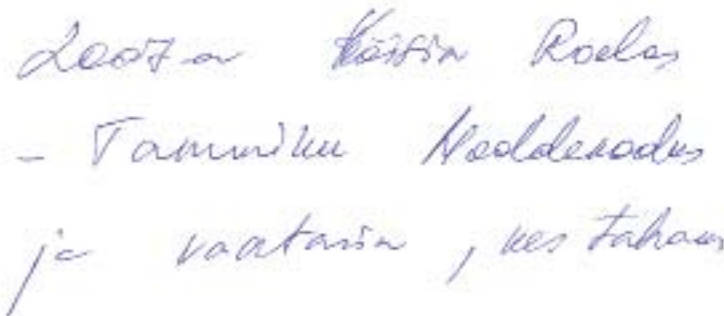 2007 a käisin Roelas
- Tammiku Hooldekodus
ja vaatasin, kes tahaks